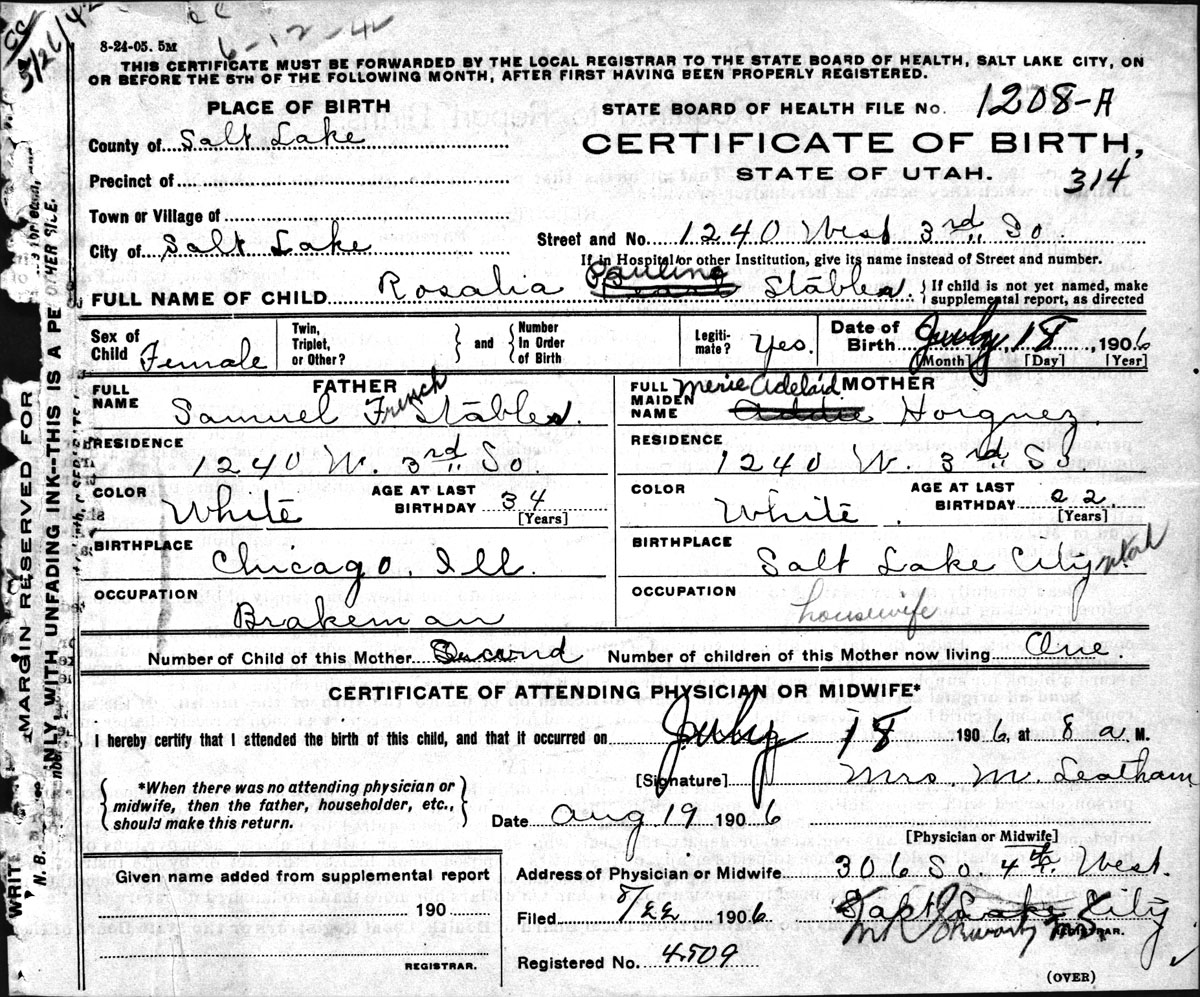 CC
5/26/42
cc
6-12-42
8-24-05. 5M
THIS CERTIFICATE MUST BE FORWARDED BY THE LOCAL REGISTRAR TO THE STATE BOARD OF HEALTH, SALT LAKE CITY, ON
OR BEFORE THE 5TH OF THE FOLLOWING MONTH, AFTER FIRST HAVING BEEN PROPERLY REGISTERED.
PLACE OF BIRTH
STATE BOARD OF HEALTH FILE No. 1208-A
County of Salt Lake
CERTIFICATE OF BIRTH,
Precinct of
STATE OF UTAH. 314
Town or Village of
City of Salt Lake
Street and No. 1240 West 3rd So.
If in Hospital or other Institution, give its name instead of Street and number.
Pauline
FULL NAME OF CHILD Rosalia Pearl Stables
{ If child is not yet named, make
supplemental report, as directed
Sex of Child Female
Twin, Triplet, or Other? } and { Number In Order of Birth
Legiti-mate? Yes.
Date of Birth July 18, 1906
[Month] [Day] [Year]
FATHER
FULL NAME Samuel French Stables.
MOTHER
FULL MAIDEN NAME Merie Adelaid Addie Horgnez.
RESIDENCE 1240 W. 3rd So
RESIDENCE 1240 W. 3rd So
COLOR White AGE AT LAST BIRTHDAY 34 [Years]
COLOR White. AGE AT LAST BIRTHDAY 22 [Years]
BIRTHPLACE Chicago, Ill.
BIRTHPLACE Salt Lake City utah
OCCUPATION Brakeman
OCCUPATION housewife
Number of Child of this Mother Second Number of children of this Mother now living One.
CERTIFICATE OF ATTENDING PHYSICIAN OR MIDWIFE*
I hereby certify that I attended the birth of this child, and that it occurred on July 18 1906, at 8 a M.
{ *When there was no attending physician or
midwife, then the father, householder, etc.,
should make this return. }
[Signature] Mrs M. Leatham
Date Aug 19 1906
[Physician or Midwife]
Given name added from supplemental report
190
REGISTRAR.
Address of Physician or Midwife 306 So. 4th. West.
Salt Lake City
Filed 8/22 1906
REGISTRAR.
Registered No. 4509
(OVER)
MARGIN RESERVED FOR
WRIT
INLY, WITH UNFADING INK--THIS IS A PE
OTHER SIDE.
N. B.